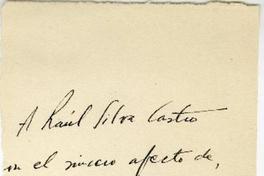 A Raúl Silva Castro
con el sincero afecto de,